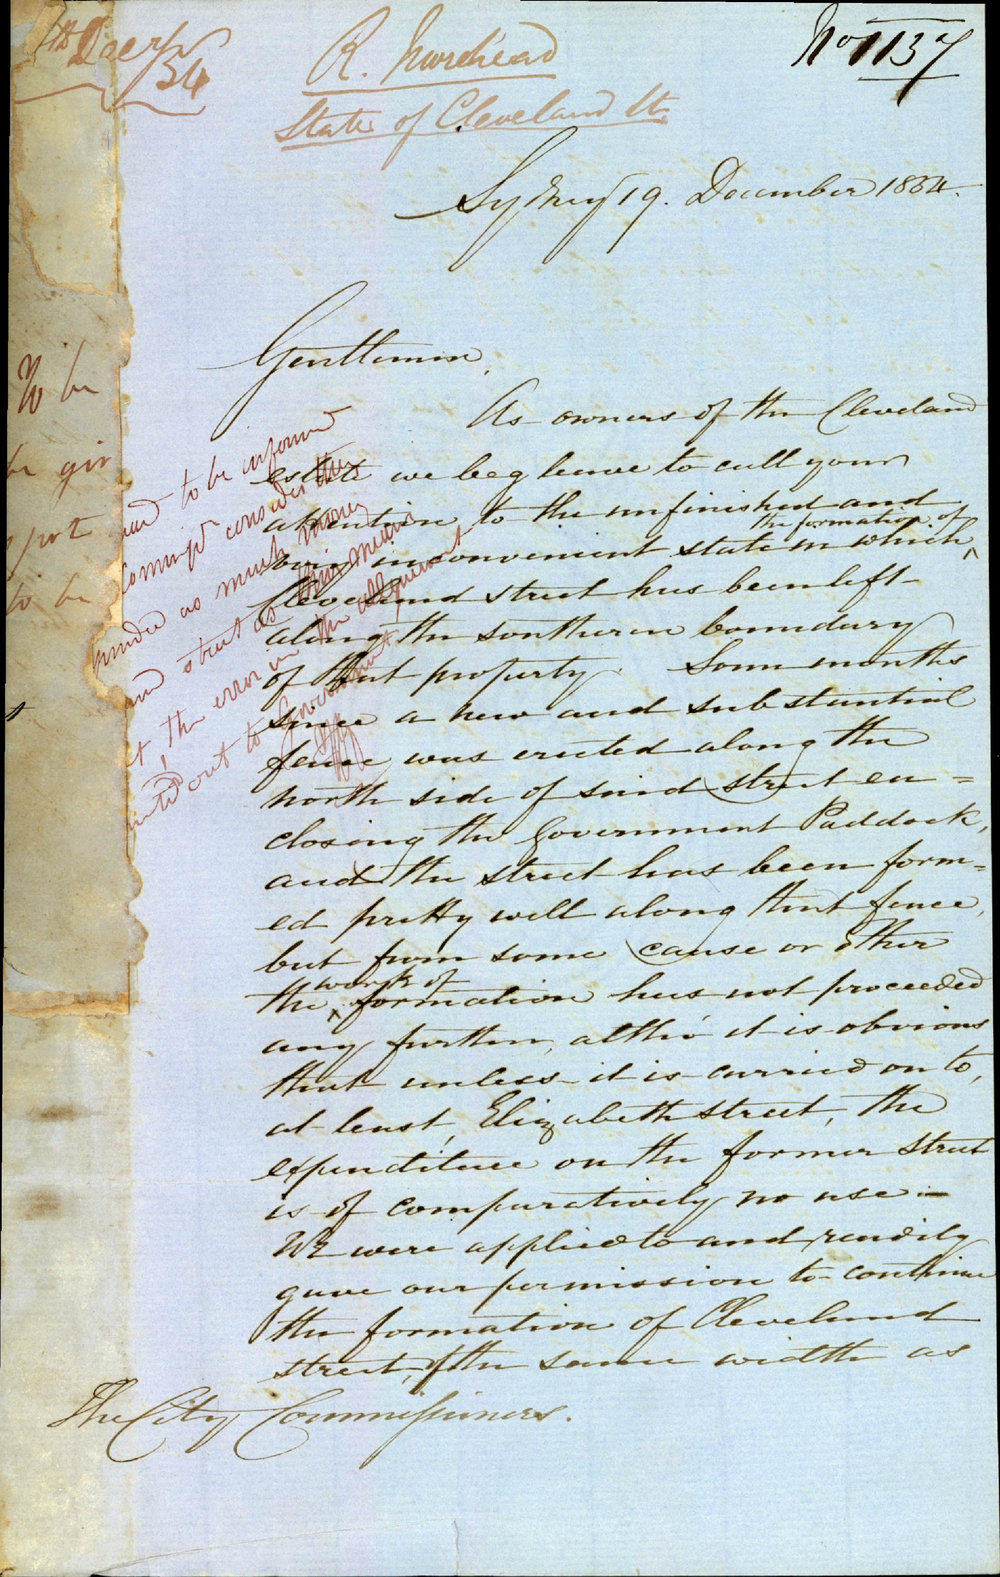 Decr/54
R. Morehead
State of Cleveland St
No 1137
Sydney 19. December 1854.
Gentlemen,
As owners of the Cleveland
estate we beg leave to call your
attention to the unfinished and
the formation of
very inconvenient state in which ^
Cleveland street has been left
along the southern boundary
of that property. Some months
since a new and substantial
fence was erected along the
north side of said street en=
closing the Government Paddock,
and the street has been form=
ed pretty well along that fence,
but from some cause or other
work of
the ^ formation has not proceeded
any further, altho' it is obvious
that unless it is carried on to,
at least, Elizabeth street, the
expenditure on the former street
is of comparatively no use –
We were applied to and readily
gave our permission to continue
the formation of Cleveland
street, of the same width as
The City Commissioners.
To be
be gi
to be
to be informed
Commrs consider they
as much money
street as their means
the error in the alignment
out to Government